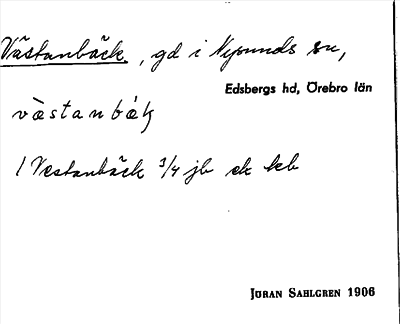 Västanbäck, gd i Nysunds sn,
Edsbergs hd, Örebro län
västanbäk
1 Vestanbäck 3/4 jb ek keb
Jöran Sahlgren 1906